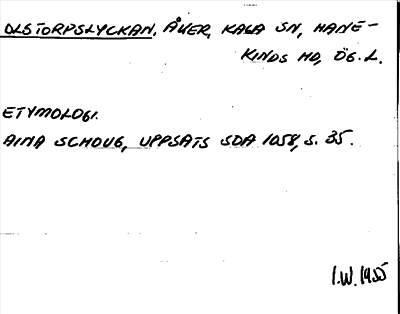 OLSTORPSLYCKAN, ÅKER, KAGA SN, HANE-
KINDS HD, ÖG. L.
ETYMOLOGI.
AINA SCHOUG, UPPSATS SDA 1058, S. 35.
I.W. 1955